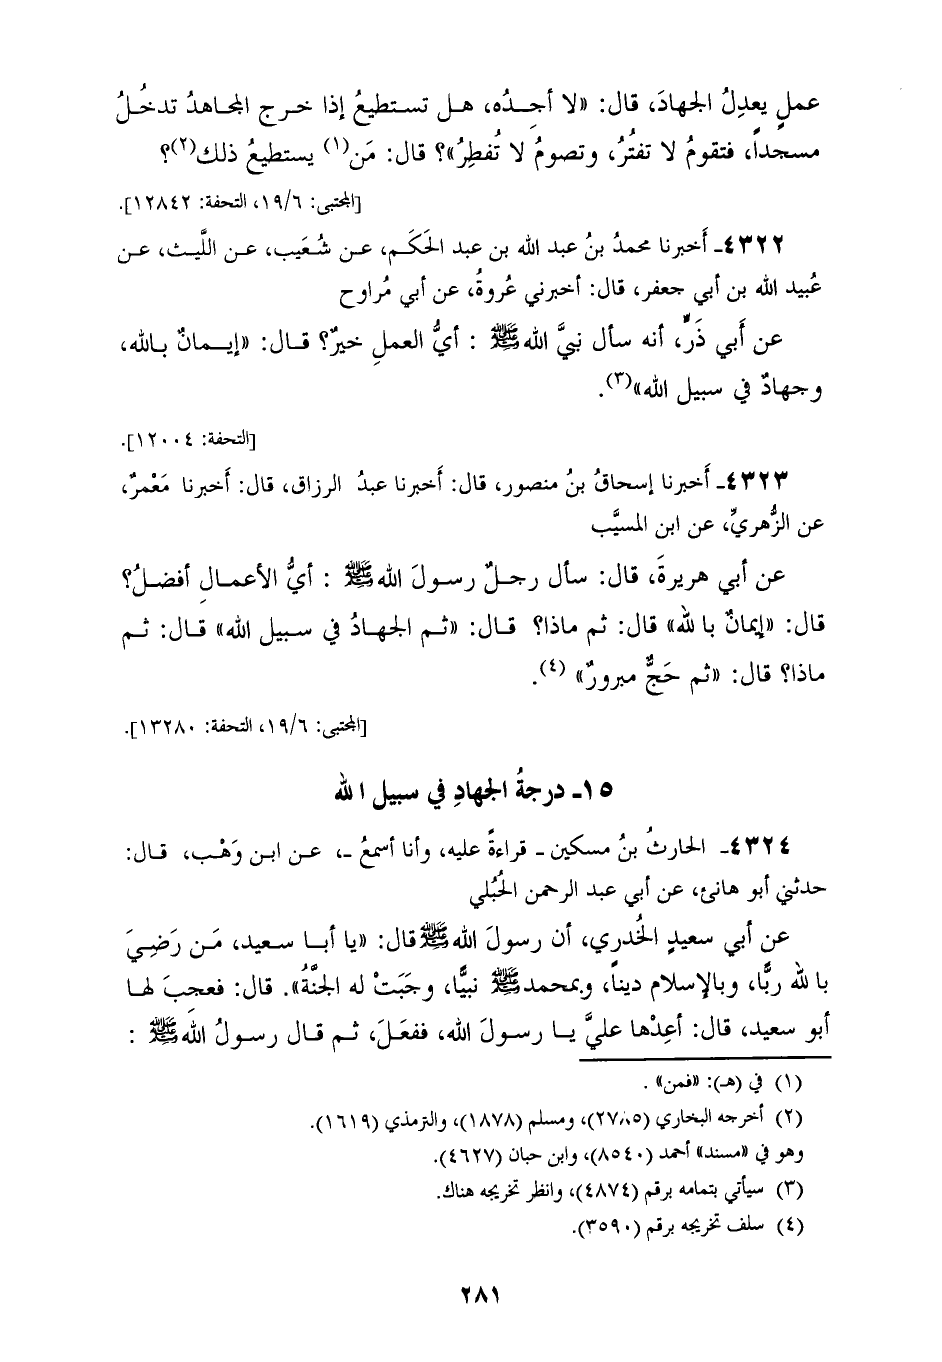 عملٍ يعدِلُ الجهادَ، قال: «لا أجِدُه، هل تستطيعُ إذا خرج المجاهدُ تدخُلُ
مسجداً، فتقومُ لا تفتُرُ، وتصومُ لا تُفطِرُ»؟ قال: مَن(١) يستطيعُ ذلك(٢)؟
[المجتبى: ١٩/٦، التحفة: ١٢٨٤٢].
٤٣٢٢ـ أَخبرنا محمدُ بنُ عبد الله بن عبد الحَكَم، عن شُعَيب، عن اللَّيث، عن
عُبيد الله بن أبي جعفر، قال: أخبرني عُروةُ، عن أبي مُراوح
عن أَبي ذَرٍّ، أنه سأل نبيَّ الله ﷺ : أيُّ العملِ خيرٌ؟ قال: «إيمانٌ بالله،
وجهادٌ في سبيل الله»(٣).
[التحفة: ١٢٠٠٤].
٤٣٢٣ـ أَخبرنا إسحاقُ بنُ منصور، قال: أَخبرنا عبدُ الرزاق، قال: أَخبرنا مَعْمرٌ،
عن الزُّهريِّ، عن ابن المسيَّب
عن أبي هريرةَ، قال: سأل رجلٌ رسولَ الله ﷺ : أيُّ الأعمالِ أفضلُ؟
قال: «إيمانٌ بالله» قال: ثم ماذا؟ قال: «ثم الجهادُ في سبيل الله» قال: ثم
ماذا؟ قال: «ثم حَجٌّ مبرورٌ» (٤).
[المجتبى: ١٩/٦، التحفة: ١٣٢٨٠].
١٥ـ درجةُ الجهادِ في سبيل الله
٤٣٢٤ـ الحارثُ بنُ مسكين ـ قراءةً عليه، وأنا أسمعُ ـ، عن ابن وَهْب، قال:
حدثني أبو هانئ، عن أبي عبد الرحمن الحُبُلي
عن أبي سعيدٍ الخُدري، أن رسولَ الله ﷺ قال: «يا أبا سعيد، مَن رَضِيَ
بالله ربًّا، وبالإسلام ديناً، وبمحمدٍ ﷺ نبيًّا، وجَبَتْ له الجنَّةُ». قال: فعجِبَ لها
أبو سعيد، قال: أعِدْها عليَّ يا رسولَ الله، ففعَلَ، ثم قال رسولُ الله ﷺ :
(١) في (هـ): «فمن» .
(٢) أخرجه البخاري (٢٧٨٥)، ومسلم (١٨٧٨)، والترمذي (١٦١٩).
وهو في «مسند» أحمد (٨٥٤٠)، وابن حبان (٤٦٢٧).
(٣) سيأتي بتمامه برقم (٤٨٧٤)، وانظر تخريجه هناك.
(٤) سلف تخريجه برقم (٣٥٩٠).
٢٨١